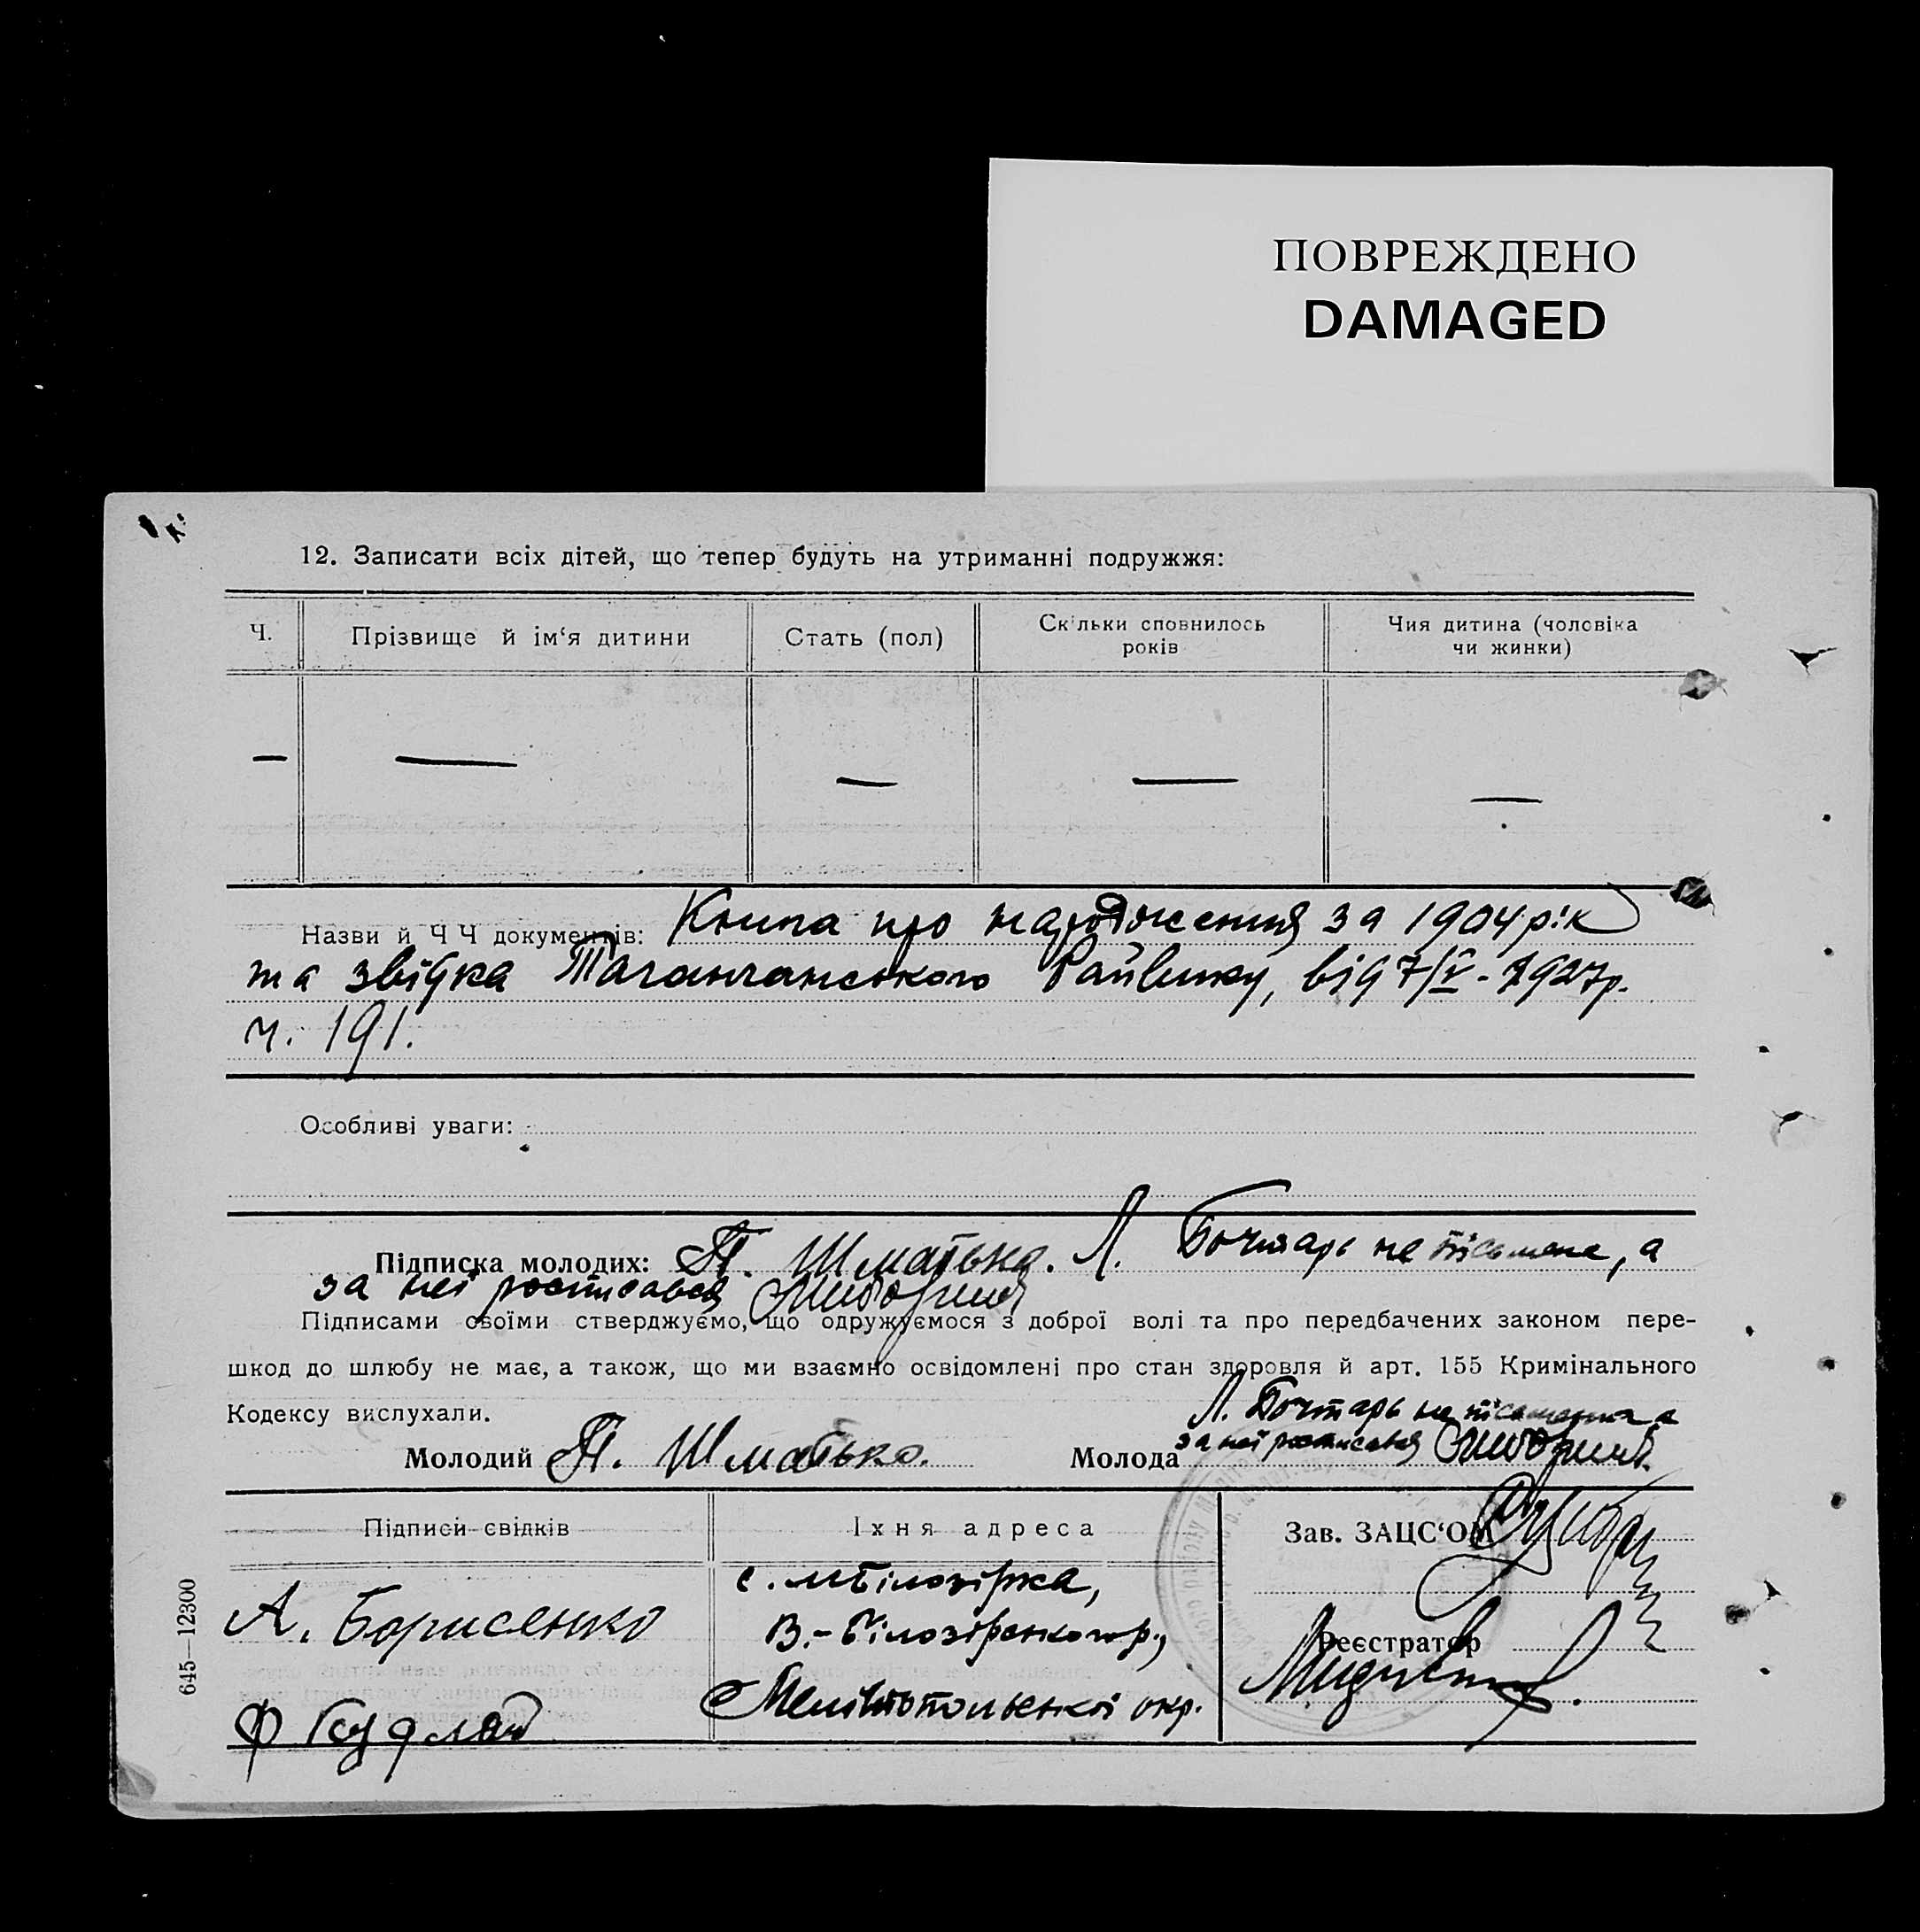 ПОВРЕЖДЕНО
DAMAGED
12. Записати всіх дітей, що тепер будуть на утриманні подружжя:
Ч.
Прізвище й ім‘я дитини
Стать (пол)
Скільки сповнилось
років
Чия дитина (чоловіка
чи жинки)
— — — — —
Назви й Ч Ч документів: Книга про народження за 1904 рік
та звідка Таганчанського Райвику, від 7/V - 1927р.
ч. 191.
Особливі уваги:
Підписка молодих: П. Шматько. Л. Бочтарь не пісьмена, а
за неї розписався
Підписами своїми стверджуємо, що одружуємося з доброї волі та про передбачених законом пере-
шкод до шлюбу не має, а також, що ми взаємно освідомлені про стан здоровля й арт. 155 Кримінального
Кодексу вислухали.
Л. Бочтарь не пісьменна а
Молодий П. Шматько.
Молода за неї розписався
Підписи свідків
Їхня адреса
Зав. ЗАЦС‘ОМ
А. Борисенко
с. м Білозірка,
В.-Білозірського р.,
Мелітопольської окр.
Реєстратор
Ф
645—12300